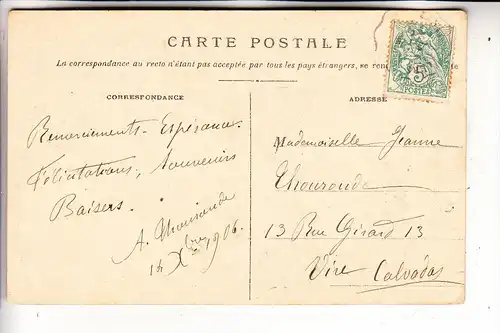 CARTE POSTALE
La correspondance au recto n'étant pas acceptée par tous les pays étrangers, se
CORRESPONDANCE
ADRESSE
Remerciements - Espérance
Félicitations, Souvenirs
Baisers.
A.
14 Xbre 1906.
Mademoiselle Jeanne
13 Rue Girard 13
Vire Calvados
5
POSTES